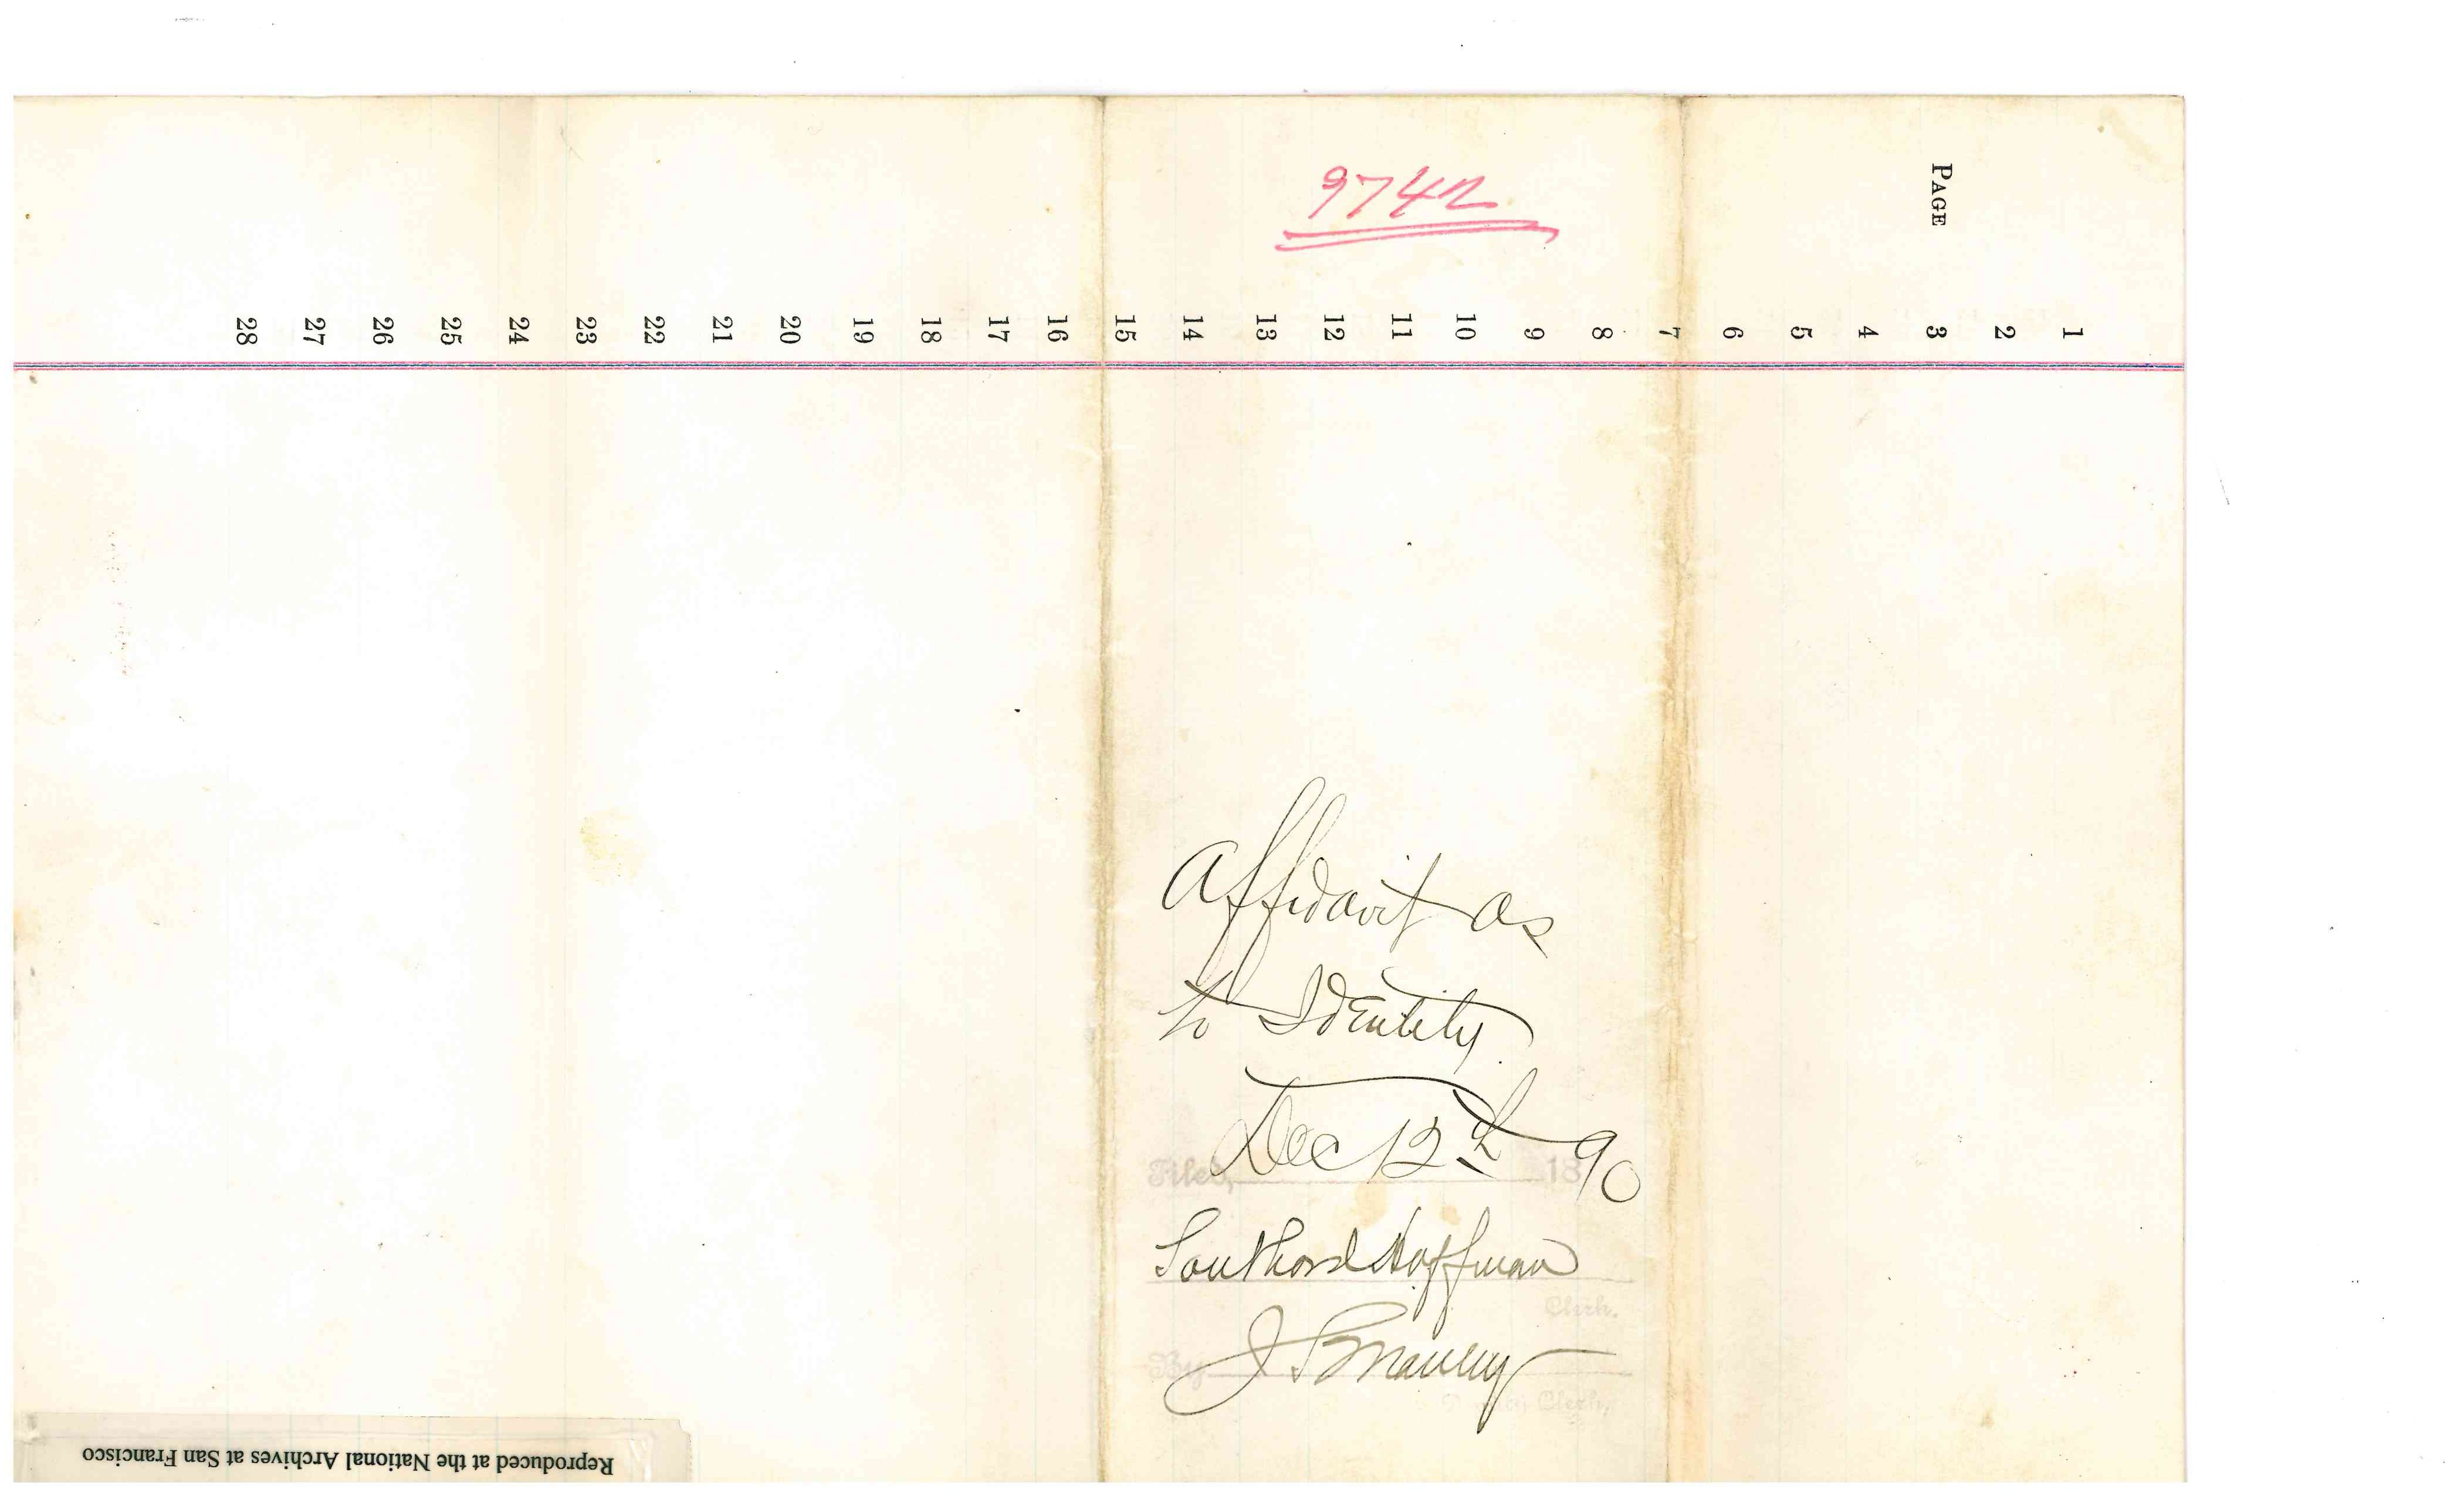 9742
PAGE
1
2
3
4
5
6
7
8
9
10
11
12
13
14
15
16
17
18
19
20
21
22
23
24
25
26
27
28
Affidavit as
to Identity
Filed, Dec 12th 1890
Southard Hoffman
Clerk.
By J. S. Manley
Deputy Clerk,
Reproduced at the National Archives at San Francisco